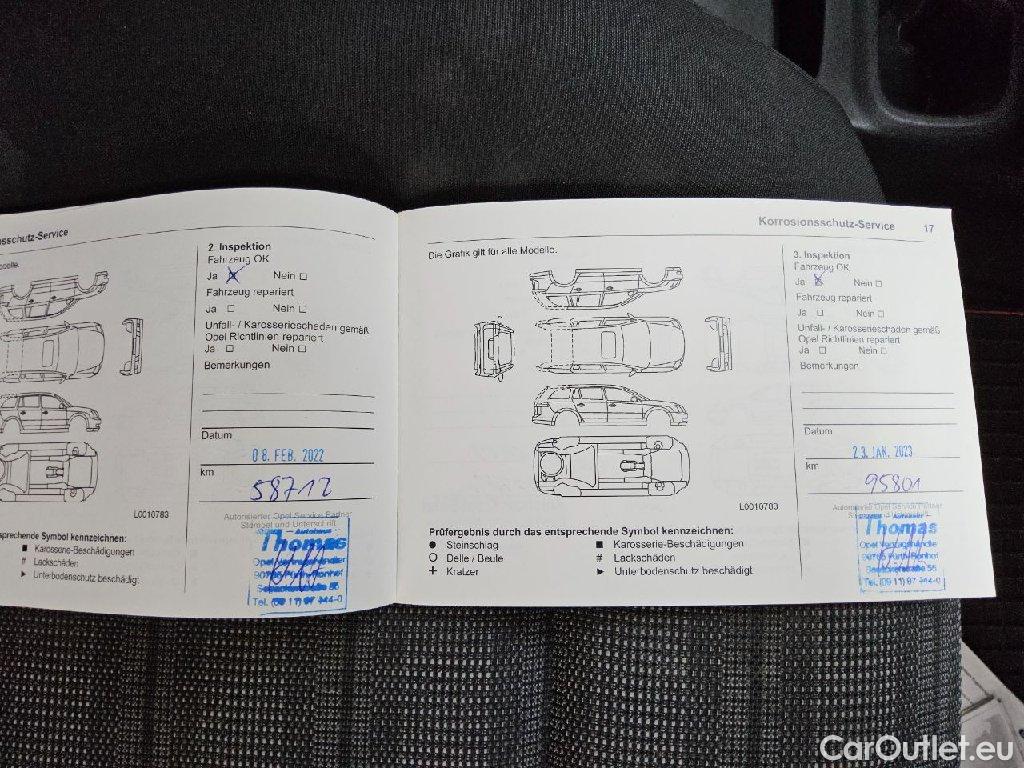 sschutz-Service
2. Inspektion
Fahrzeug OK
Ja Nein
Fahrzeug repariert
Ja Nein
Unfall- / Karosserieschäden gemäß
Opel Richtlinien repariert
Ja Nein
Bemerkungen
Datum
08. FEB. 2022
km
58712
L0010783
Autorisierter Opel Service Partner
Stempel und Unterschrift
Autohaus
Thomas
Tel. (09 11) 97
sprechende Symbol kennzeichnen:
■ Karosserie-Beschädigungen
# Lackschäden
► Unterbodenschutz beschädigt
Korrosionsschutz-Service 17
Die Grafik gilt für alle Modelle.
3. Inspektion
Fahrzeug OK
Ja Nein
Fahrzeug repariert
Ja Nein
Unfall- / Karosserieschäden gemäß
Opel Richtlinien repariert
Ja Nein
Bemerkungen
Datum
23. JAN. 2023
km
95801
L0010783
Autorisierter Opel Service Partner
Thomas
Tel. (09 11) 97
Prüfergebnis durch das entsprechende Symbol kennzeichnen:
● Steinschlag
○ Delle / Beule
+ Kratzer
■ Karosserie-Beschädigungen
# Lackschäden
► Unterbodenschutz beschädigt
CarOutlet.eu